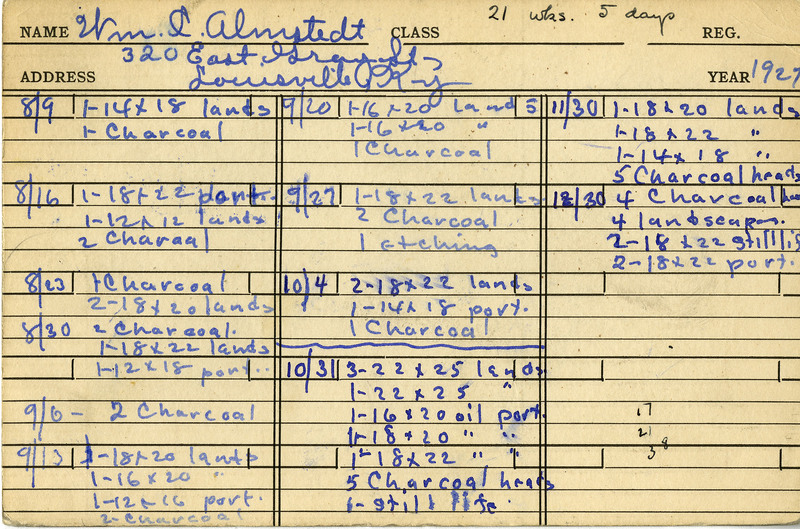 21 wks. 5 days
NAME Wm. C. Almstedt CLASS REG.
320 East Gray St.,
ADDRESS Louisville, Ky YEAR 1927
8/9 1-14x18 lands
1-Charcoal
8/16 1-18x22 port.
1-12x12 lands
2 Charcoal
8/23 1-Charcoal
2-18x20 lands
8/30 2 Charcoal.
1-18x22 lands
1-12x18 port..
9/6 - 2 Charcoal
9/13 1-18x20 lands
1-16x20 "
1-12x16 port.
2-Charcoal
9/20 1-16x20 land s
1-16x20 "
1 Charcoal
9/27 1-18x22 lands
2 Charcoal
1 etching
10/4 2-18x22 lands
1-14x18 port.
1 Charcoal
10/31 3-22x25 lands
1-22x25 "
1-16x20 oil port.
1-18x20 " "
1-18x22 " "
5 Charcoal heads
1-still life.
11/30 1-18x20 lands
1-18x22 "
1-14x18 "
5 Charcoal heads
12/30 4 Charcoal
4 landscapes.
2-18x22 still lif
2-18x22 port.
17
21
38